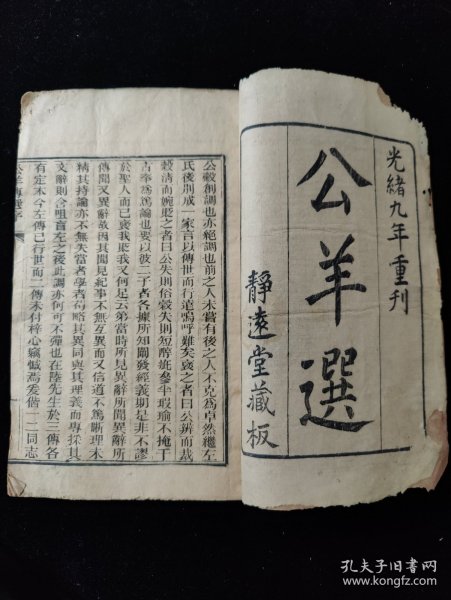 光緒九年重刊
公羊選
靜遠堂藏板
公穀創調也亦絕調也前之人未嘗有後之人不克為卓然繼左
氏後則成一家言以傳世而行遠嗚呼難矣袁之者曰公辨而裁
穀清而婉貶之者曰公失則俗穀失則短醇疵參半瑕瑜不掩于
古奉為篤論也要以彼二子者各據所知闡發經義期是非不謬
於聖人而已褒我貶我又何足云弟當時所見異辭所聞異辭所
傳聞又異辭故因其聞見紀事不無互異而又信道不篤斷理未
精其持論亦不無失當者學者苟略其異同與其理義而專採其
文辭則含咀盲左之後此調亦何可不彈也在陸先生於三傳各
有定本今左傳已行世而二傳未付梓心竊憾焉爰偕一二同志
孔夫子旧书网
www.kongfz.com